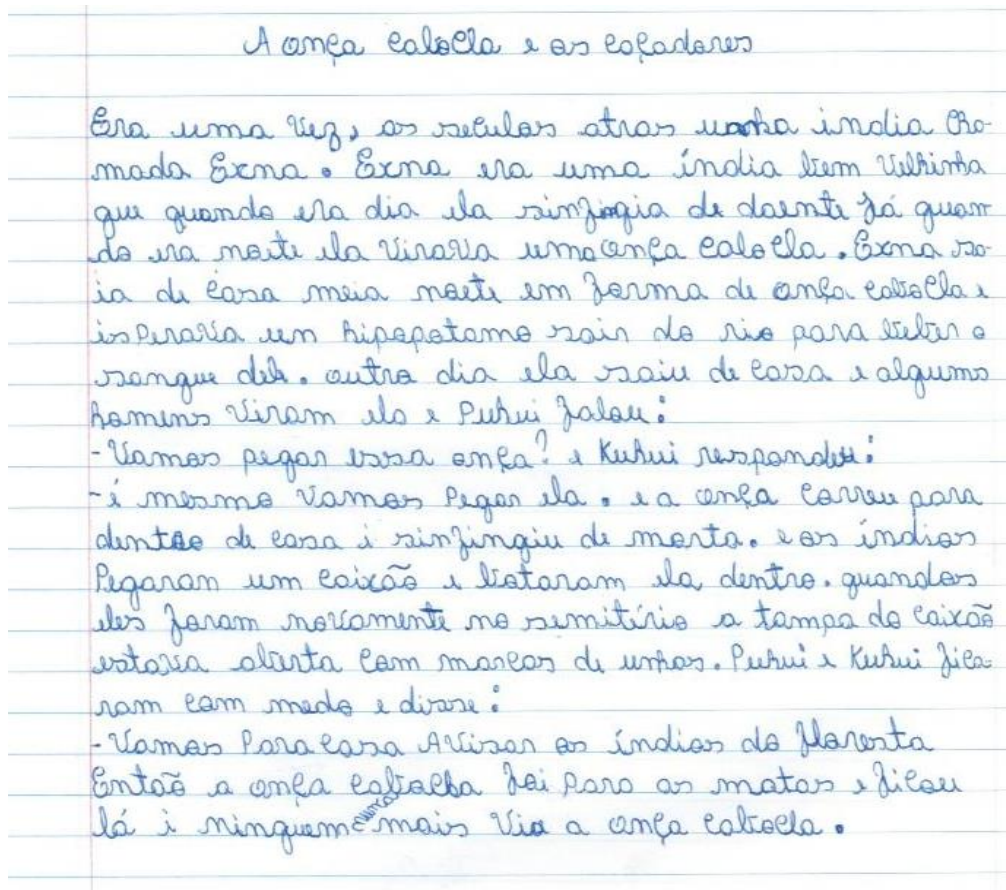 A onça cabocla e os caçadores
Era uma vez, os seculos atras uma india cha-
mada Exna. Exna era uma índia bem Velhinha
que quando era dia ela sinfingia de doente já quan
do era noite ela Virava uma onça cabocla. Exna sa-
ia de casa meia noite em forma de onça cabocla e
isperava um hipopotamo sair do rio para beber o
sangue dele. outro dia ela saiu de casa e alguns
homens Viram ela e Puhui falou:
-Vamos pegar essa onça? e Kuhui respondeu:
-é mesmo Vamos Pegar ela. e a onça correu para
dentro de casa i sinfingiu de morta. e os índios
Pegaram um caixão e botaram ela dentro. quandos
eles foram novamente no semitírio a tampa do caixão
estava aberta com marcas de unhas. Puhui e Kuhui fica-
ram com medo e disse:
-Vamos Para casa AVisar os índios da floresta
Então a onça cabocla foi para as matas e ficou
lá i ninguem nunca mais Via a onça cabocla.